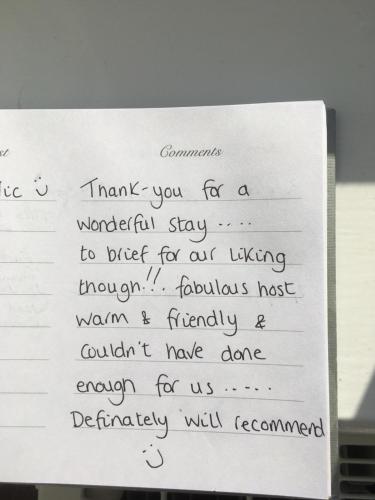 st
Comments
lic :)
Thank-you for a
wonderful stay ....
to brief for our liking
though!!. fabulous host
warm & friendly &
couldn't have done
enough for us .....
Definately will recommend
:)